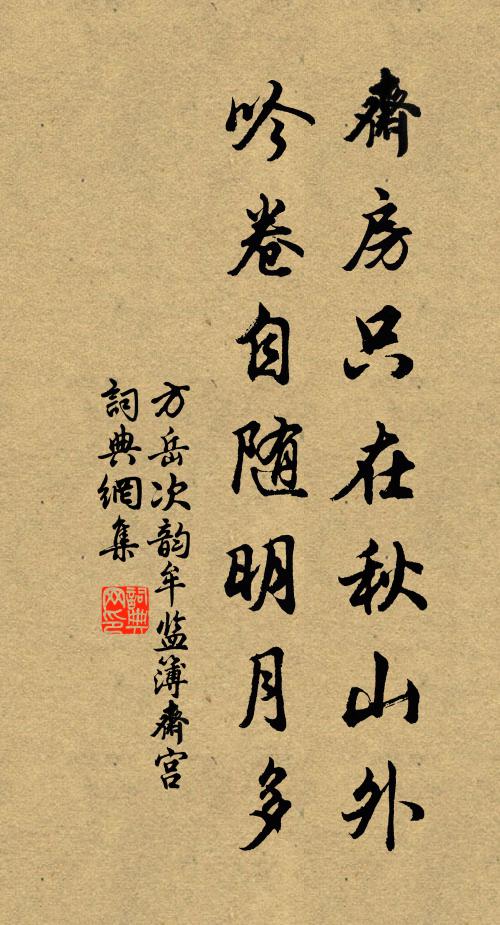 齋房只在秋山外
吟卷自随明月多
方岳次韵牟监簿齋宫
詞典網集
詞典網印